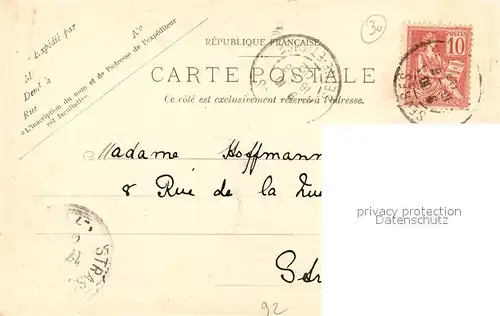 30
RÉPUBLIQUE FRANÇAISE
CARTE POSTALE
Ce côté est exclusivement réservé à l'adresse.
« Expédié par
M
Demt à
Rue
No
« L'inscription du nom et de l'adresse de l'expéditeur
est facultative »
10
Madame Hoffmann
8 Rue de la
privacy protection
Datenschutz
STRAS
17
92